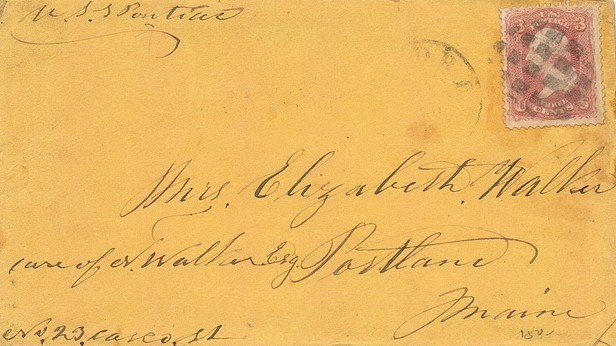 U.S.S Pontiac
U.S. POSTAGE
3 3
Mrs. Elizabeth. Walker
care of N. Walker Esq Portland
Maine
No. 23. casco. st
150-